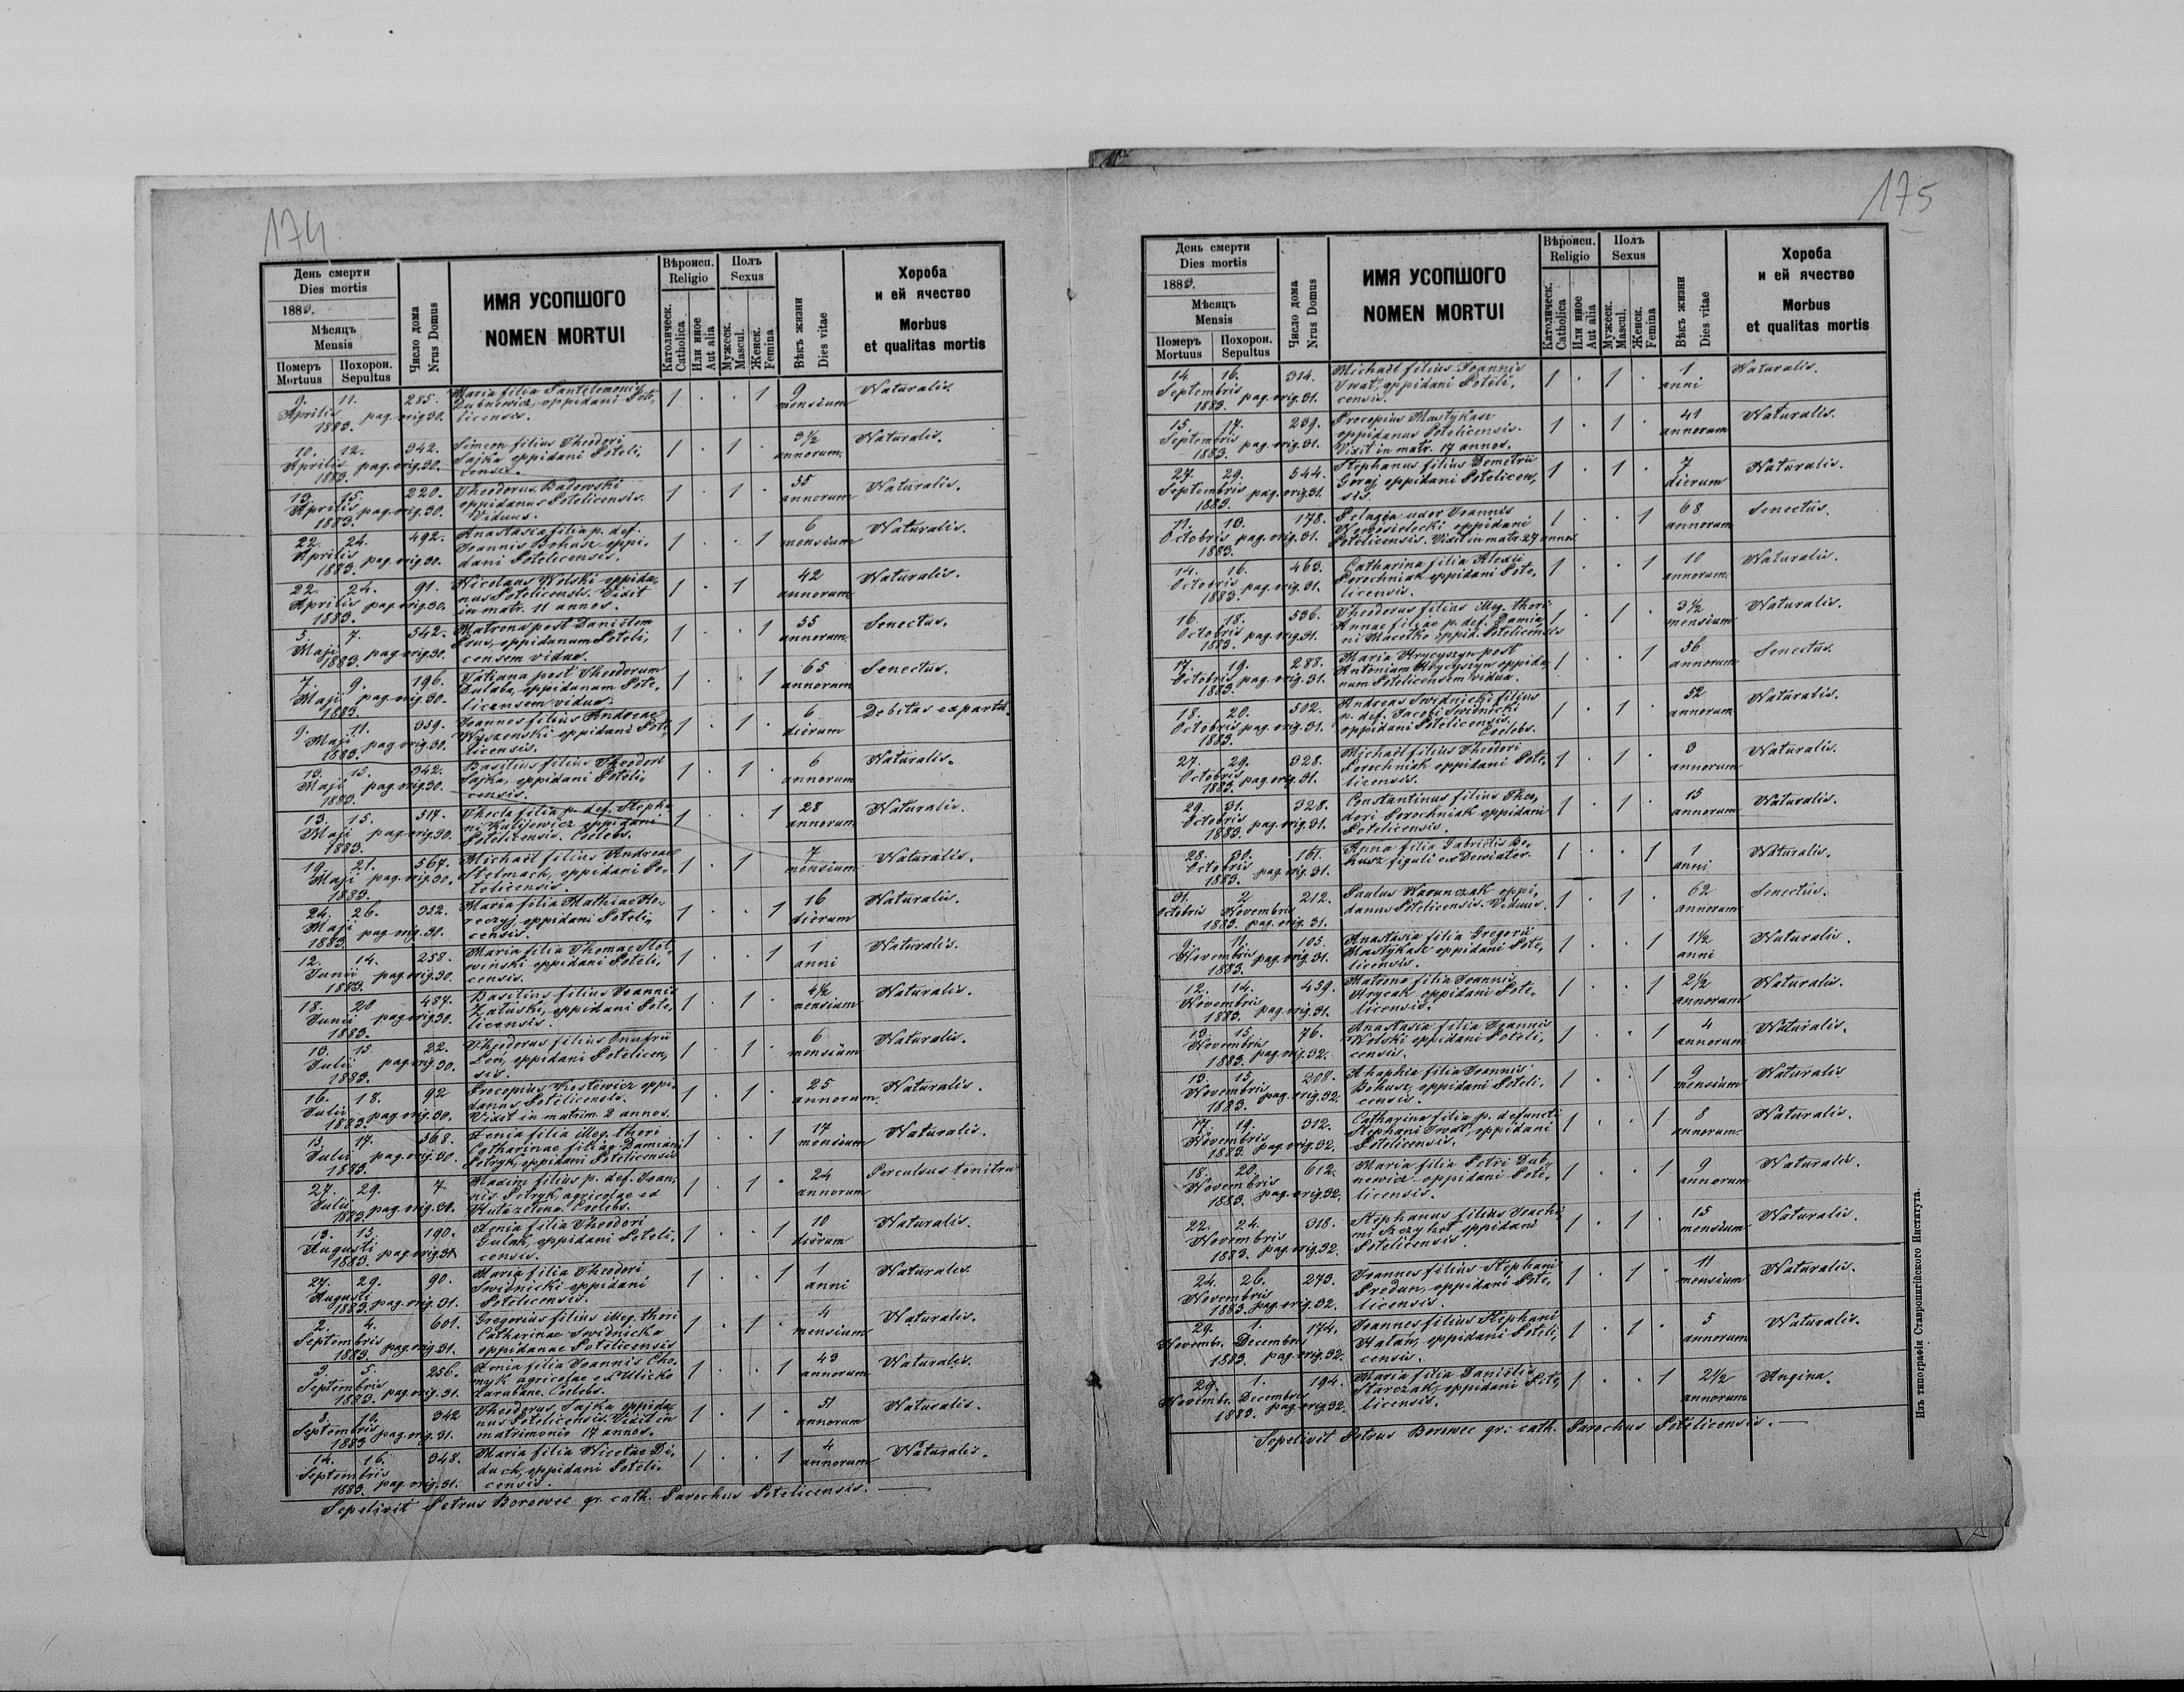 174
День смерти
Dies mortis
1883.
Мѣсяцъ
Mensis
Померъ
Mortuus
Похорон.
Sepultus
Число дома
Nrus Domus
ИМЯ УСОПШОГО
NOMEN MORTUI
Вѣроисп.
Religio
Католическ.
Catholica
Или иное
Aut alia
Полъ
Sexus
Мужеск.
Mascul.
Женск.
Femina
Вѣкъ жизни
Dies vitae
Хороба
и ей ячество
Morbus
et qualitas mortis
9. 11. 285. Maria filia Pantelemonis 1 . . 1 9 Naturalis.
Aprilis pag. orig. 30. Dubnewicz, oppidani Pote- mensium
1883. licensis.
10. 12. 342. Simeon filius Theodori 1 . 1 . 3½ Naturalis.
Aprilis pag. orig. 30. Sajka oppidani Poteli- annorum
1883. censis.
13. 15. 220. Theodorus Badowski 1 . 1 . 55 Naturalis.
Aprilis pag. orig. 30. oppidanus Potelicensis. annorum
1883. Viduus.
22. 24. 492. Anastasia filia p. def. 1 . . 1 6 Naturalis.
Aprilis pag. orig. 30. Joannis Bohusz oppi- mensium
1883. dani Potelicensis.
22. 24. 91. Nicolaus Wolski oppida- 1 . 1 42 Naturalis.
Aprilis pag. orig. 30. nus Potelicensis. Vixit annorum
1883. in matr. 11 annos.
5. 7. 542. Matrona post Danielem 1 . . 1 55 Senectus.
Maji pag. orig. 30. oppidanum Poteli- annorum
1883. censem vidua.
7. 9. 196. Tatiana post Theodorum 1 . . 1 65 Senectus.
Maji pag. orig. 30. oppidanum Pote- annorum
1883. licensem vidua.
9. 11. 359. Joannes filius Andreae 1 . 1 . 6 Debitas ex partu.
Maji pag. orig. 30. Wyszenski oppidani Pote- dierum
1883. licensis.
13. 15. 342. Basilius filius Theodori 1 . 1 . 6 Naturalis.
Maji pag. orig. 30. Sajka, oppidani Poteli- annorum
1883. censis.
13. 15. 517. Thecla filia p. def. Stepha- 1 . . 1 28 Naturalis.
Maji pag. orig. 30. ni Kulijewicz oppidani annorum
1883. Potelicensis. Coelebs.
19. 21. 567. Michaël filius Andreae 1 . 1 7 Naturalis.
Maji pag. orig. 30. Stelmach, oppidani Po- mensium
1883. telicensis.
24. 26. 352. Maria filia Mathiae Ko- 1 . . 1 16 Naturalis.
Maji pag. orig. 30. reczyj oppidani Poteli- dierum
1883. censis.
12. 14. 258. Maria filia Thomae Stot- 1 . . 1 1 Naturalis.
Junii pag. orig. 30. winski oppidani Poteli- anni
1883. censis.
18. 20 487. Basilius filius Joannis 1 . 1 . 4½ Naturalis.
Junii pag. orig. 30. Zaluski, oppidani Pote- mensium
1883. licensis.
13. 15 22. Theodorus filius Onufrii 1 . 1 . 6 Naturalis.
Julii pag. orig. 30. oppidani Potelicen- mensium
1883. sis.
16. 18. 92 Procopius Kostewicz oppi- 1 . 1 . 25 Naturalis.
Julii pag. orig. 30. danus Potelicensis. annorum
1883. Vixit in matrim. 2 annos.
15. 17. 568. Xenia filia illeg. thori 1 . . 1 17 Naturalis.
Julii pag. orig. 30. Catharinae filiae Damiani mensium
1883. Petryk, oppidani Potelicensis
27. 29. 7. Maxim filius p. def. Joan- 1 . 1 . 24 Perculsus tonitru
Julii pag. orig. 30. nis Petryk, agricolae ex annorum
1883. Hutazelena. Coelebs.
13. 15. 190. Xenia filia Theodori 1 . . 1 10 Naturalis.
Augusti pag. orig. 31. Gulak, oppidani Poteli- dierum
1883. censis.
27. 29. 90. Maria filia Theodori 1 . . 1 1 Naturalis.
Augusti pag. orig. 31. Swidnicki oppidani anni
1883. Potelicensis.
2. 4. 601. Gregorius filius illeg. thori 1 . 1 . 4 Naturalis.
Septembris pag. orig. 31. Catharinae Swidnicka mensium
1883. oppidanae Potelicensis
3. 5. 256. Xenia filia Joannis Cho- 1 . . 1 43 Naturalis.
Septembris pag. orig. 31. myk agricolae ex Ulicko annorum
1883. zarubane. Coelebs.
10. 342 Theodorus Sajka oppida- 1 . 1 . 51 Naturalis.
Septembris pag. orig. 31. nus Potelicensis. Vixit in annorum
1883 matrimonio 17 annos.
14. 16. 348. Maria filia Nicetae Di- 1 . . 1 4 Naturalis.
Septembris pag. orig. 31. duch, oppidani Poteli- annorum
1883. censis.
Sepelivit Petrus Borowec gr. cath. Parochus Potelicensis.
175
День смерти
Dies mortis
1883.
Мѣсяцъ
Mensis
Померъ
Mortuus
Похорон.
Sepultus
Число дома
Nrus Domus
ИМЯ УСОПШОГО
NOMEN MORTUI
Вѣроисп.
Religio
Католическ.
Catholica
Или иное
Aut alia
Полъ
Sexus
Мужеск.
Mascul.
Женск.
Femina
Вѣкъ жизни
Dies vitae
Хороба
и ей ячество
Morbus
et qualitas mortis
14. 16. 314. Michaël filius Joannis 1 . 1 . 1 Naturalis.
Septembris pag. orig. 31. Iwat, oppidani Poteli- anni
1883. censis.
15. 17. 239. Procopius Mastykasz 1 . 1 . 41 Naturalis.
Septembris pag. orig. 31. oppidanus Potelicensis. annorum
1883. Vixit in matr. 17 annos.
27. 29. 544. Stephanus filius Demetrii 1 . 1 . 7 Naturalis.
Septembris pag. orig. 31. Goraj, oppidani Potelicen- dierum
1883. sis.
11. 13. 178. Pelagia uxor Joannis 1 . . 1 68 Senectus.
Octobris pag. orig. 31. Werbosielecki oppidani annorum
1883. Potelicensis. Vixit in matr 27 annos
14. 16. 463. Catharina filia Alexii 1 . . 1 10 Naturalis.
Octobris pag. orig. 31. Porochniak oppidani Pote- annorum
1883. licensis.
16. 18. 536. Theodorus filius illeg. thori 1 . 1 . 3½ Naturalis.
Octobris pag. orig. 31. Annae filiae p. def. Damia- mensium
1883. ni Macełko oppid. Potelicensis
17. 19. 288. Maria Hrycyszyn post 1 . . 1 56 Senectus.
Octobris pag. orig. 31. Antonium Hrycyszyn oppida- annorum
1883. num Potelicensem vidua.
18. 20. 502. Andreas Swidnicki filius 1 . 1 . 52 Naturalis.
Octobris pag. orig. 31. p. def. Jacobi Swidnicki annorum
1883. oppidani Potelicensis.
Coelebs.
27. 29. 328. Michaël filius Theodori 1 . 1 . 3 Naturalis.
Octobris pag. orig. 31. Porochniak oppidani Pote- annorum
1883. licensis.
29. 31. 328. Constantinus filius Theo- 1 . 1 . 15 Naturalis.
Octobris pag. orig. 31. dori Porochniak oppidani annorum
1883. Potelicensis.
28. 30. 161. Anna filia Gabrielis Bo- 1 . . 1 1 Naturalis.
Octobris pag. orig. 31. husz figuli ex Dewiater. anni
1883.
31. 2 212. Paulus Karunczak oppi- 1 . 1 . 62 Senectus.
Octobris Novembris danus Potelicensis. Viduus. annorum
1883. pag. orig. 31.
9. 11. 105. Anastasia filia Gregorii 1 . . 1 1½ Naturalis.
Novembris pag. orig. 31. Mastykasz oppidani Pote- anni
1883. licensis.
12. 14. 459. Matrona filia Joannis 1 . . 1 2½ Naturalis.
Novembris pag. orig. 31. Hrycak oppidani Pote- annorum
1883. licensis.
13. 15. 76. Anastasia filia Joannis 1 . . 1 4 Naturalis.
Novembris pag. orig. 32. Wolski oppidani Poteli- annorum
1883. censis.
13. 15. 208. Ahaphia filia Joannis 1 . . 1 9 Naturalis
Novembris pag. orig. 32. Bohusz, oppidani Poteli- mensium
1883. censis.
17. 19. 312. Catharina filia p. defuncti 1 . . 1 8 Naturalis.
Novembris pag. orig. 32. Stephani Iwat, oppidani annorum
1883. Potelicensis.
18. 20. 612. Maria filia Petri Dub- 1 . . 1 9 Naturalis.
Novembris pag. orig. 32. newicz oppidani Pote- annorum
1883. licensis.
22. 24. 318. Stephanus filius Joachi- 1 . 1 . 15 Naturalis.
Novembris pag. orig. 32. mi Szczyhot oppidani mensium
1883. Potelicensis.
24. 26. 273. Joannes filius Stephani 1 . 1 . 11 Naturalis.
Novembris pag. orig. 32. Predun, oppidani Pote- mensium
1883. licensis.
29. 1. 174. Joannes filius Stephani 1 . 1 . 5 Naturalis.
Novembr. Decembris oppidani Poteli- annorum
1883. pag. orig. 32. censis.
29. 1. 194. Maria filia Danielis 1 . . 1 2½ Angina.
Novembr. Decembris Starczak, oppidani Pote- annorum
1883. pag. orig. 32. licensis.
Sepelivit Petrus Borowec gr: cath. Parochus Potelicensis.
Изъ типографіи Ставропигійского Института.